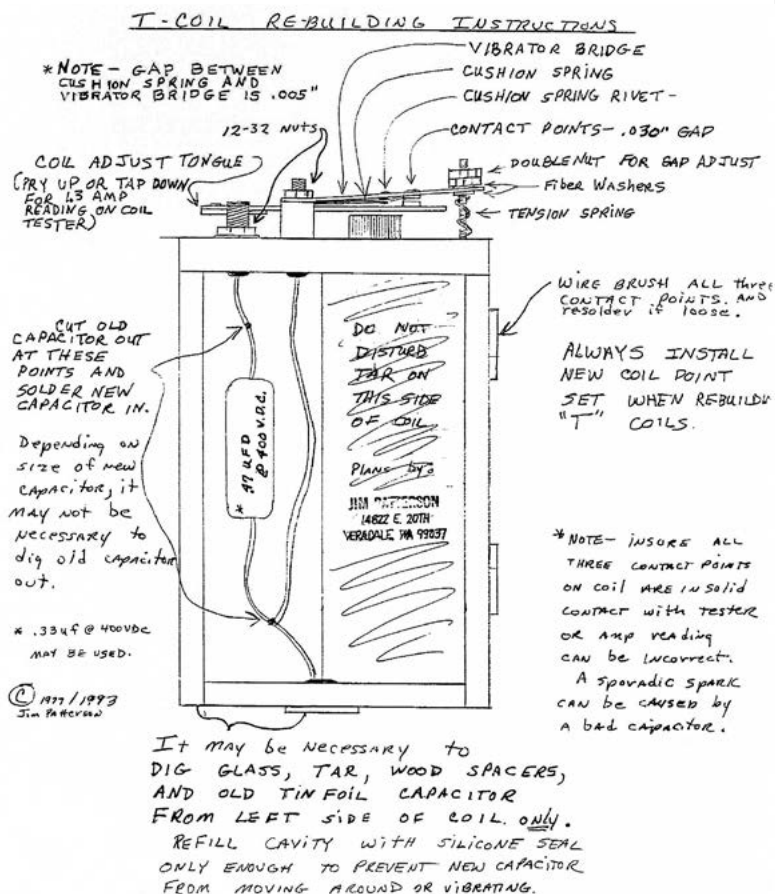 T-COIL RE-BUILDING INSTRUCTIONS
*NOTE - GAP BETWEEN
CUSHION SPRING AND
VIBRATOR BRIDGE IS .005"
VIBRATOR BRIDGE
CUSHION SPRING
CUSHION SPRING RIVET -
CONTACT POINTS - .030" GAP
12-32 NUTS
DOUBLE NUT FOR GAP ADJUST
Fiber Washers
TENSION SPRING
COIL ADJUST TONGUE
(PRY UP OR TAP DOWN
FOR 1.3 AMP
READING ON COIL
TESTER)
WIRE BRUSH ALL three
CONTACT POINTS. AND
resolder if loose.
ALWAYS INSTALL
NEW COIL POINT
SET WHEN REBUILDI
"T" COILS.
CUT OLD
CAPACITOR OUT
AT THESE
POINTS AND
SOLDER NEW
CAPACITOR IN.
Depending on
size of new
CAPACITOR, it
MAY NOT be
Necessary to
dig old capacitor
out.
* .33uf @ 400VDC
MAY BE USED.
© 1977/1993
Jim Patterson
* .47 UFD
@ 400 V.D.C.
DO NOT
DISTURB
TAR ON
THIS SIDE
OF COIL
PLANS by:
JIM PATTERSON
14622 E. 20TH
VERADALE, WA 99037
*NOTE - INSURE ALL
THREE CONTACT POINTS
ON COIL ARE IN Solid
CONTACT with TESTER
OR Amp reading
CAN be INCORRECT.
A sporadic spark
CAN be CAUSED by
A bad CAPACITOR.
It may be Necessary to
DIG GLASS, TAR, WOOD SPACERS,
AND OLD TIN FOIL CAPACITOR
FROM LEFT SIDE OF COIL ONLY.
REFILL CAVITY WITH SILICONE SEAL
ONLY ENOUGH TO PREVENT NEW CAPACITOR
FROM MOVING AROUND OR VIBRATING.